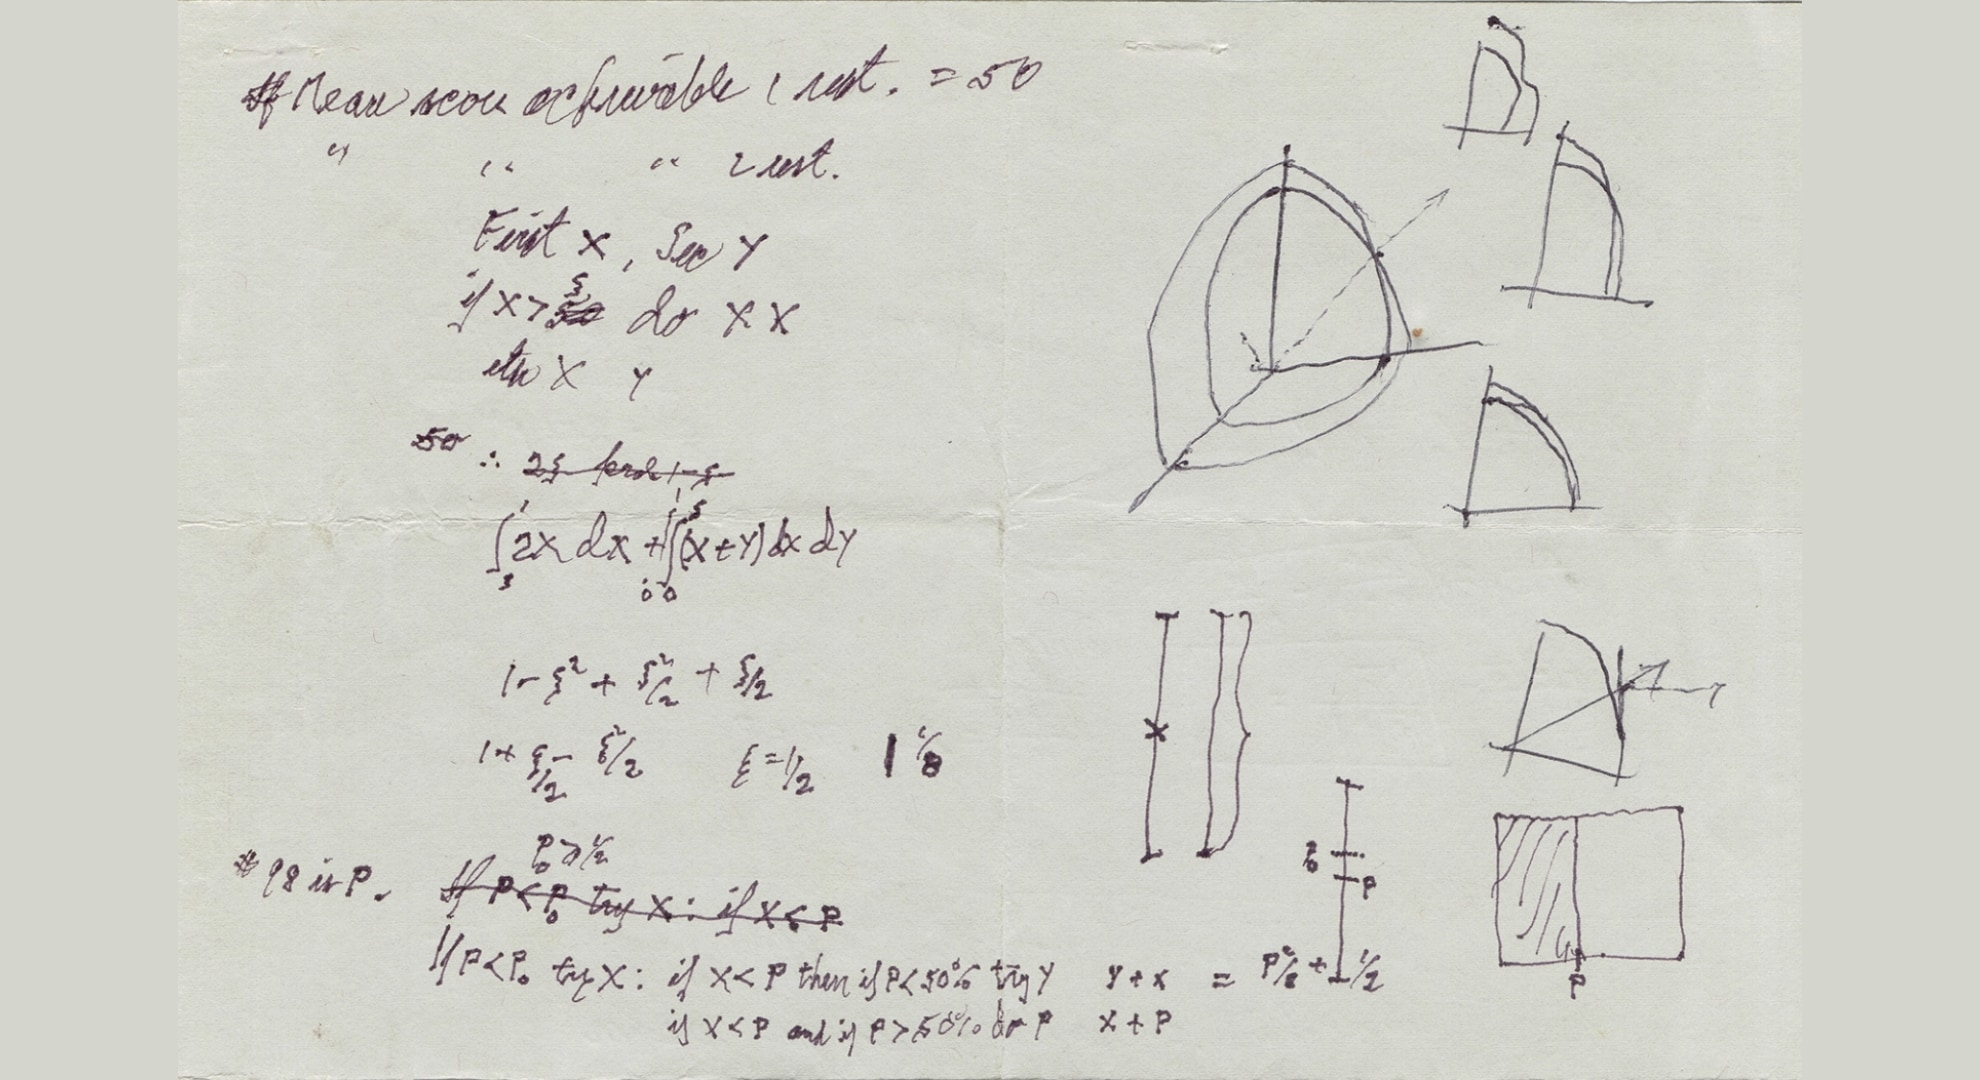 If Mean score achievable 1 rest. = 50
" " " 2 rest.
First X, Sec Y
if X > ξ do X X
X Y
50 ∴ 2ξ
∫_ξ^1 2X dX + ∫_0^1 ∫_0^ξ (X+Y) dX dY
1 - ξ² + ξ²/2 + ξ/2
1 + ξ/2 - ξ²/2 ξ = 1/2 1 1/8
P₀ > 1/2
# 98 is P. If P < P₀ try X: if X < P
If P < P₀ try X: if X < P then if P < 50% try Y Y + X = P²/2 + 1/2
if X < P and if P > 50% do P X + P
X
P₀
P
P